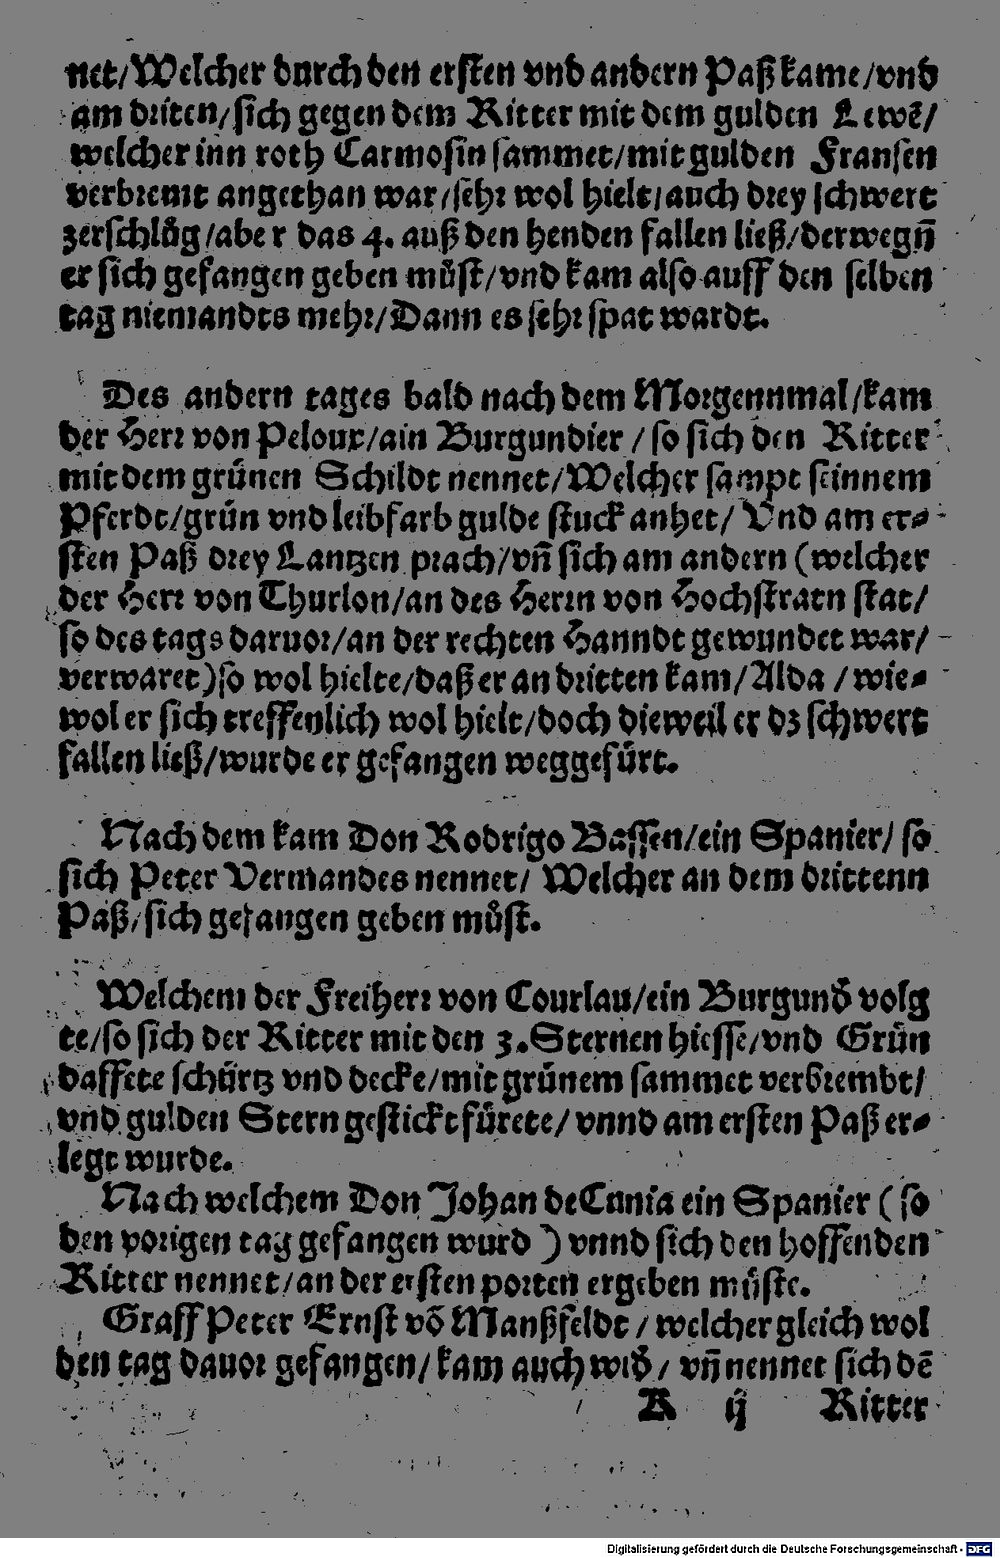 net/Welcher durch den ersten vnd andern Paß kame/vnd
am driten/sich gegen dem Ritter mit dem gulden Lewẽ/
welcher inn roth Carmosin sammet/mit gulden Fransen
verbremt angethan war/sehr wol hielt/auch drey schwert
zerschlůg/aber das 4. auß den henden fallen ließ/derwegñ
er sich gefangen geben můst/vnd kam also auff den selben
tag niemandts mehr/Dann es sehr spat wardt.
Des andern tages bald nach dem Morgennmal/kam
der Herr von Peloux/ain Burgundier / so sich den Ritter
mit dem grünen Schildt nennet/Welcher sampt seinnem
Pferdt/grün vnd leibfarb gulde stuck anhet/ Vnd am er⸗
sten Paß drey Lantzen prach/vñ sich am andern (welcher
der Herr von Thurlon/an des Herrn von Hochstratn stat/
so des tags daruor/an der rechten Hanndt gewundet war/
verwaret)so wol hielte/daß er an dritten kam/Alda / wie⸗
wol er sich treffenlich wol hielt/doch dieweil er dz schwert
fallen ließ/wurde er gefangen weggefürt.
Nach dem kam Don Rodrigo Bassen/ein Spanier/ so
sich Peter Vermandes nennet/ Welcher an dem drittenn
Paß/sich gefangen geben můst.
Welchem der Freiherr von Courlau/ein Burgund volg
te/so sich der Ritter mit den 3. Sternen hiesse/vnd Grün
daffete schürtz vnd decke/mit grünem sammet verbrembt/
vnd gulden Stern gestickt fürete/ vnnd am ersten Paß er⸗
legt wurde.
Nach welchem Don Johan de Cunia ein Spanier ( so
den vorigen tag gefangen wurd ) vnnd sich den hoffenden
Ritter nennet/an der ersten porten ergeben müste.
Graff Peter Ernst võ Manßfeldt / welcher gleich wol
den tag dauor gefangen/kam auch wid/ vñ nennet sich dẽ
A ij Ritter
Digitalisierung gefördert durch die Deutsche Forschungsgemeinschaft - DFG